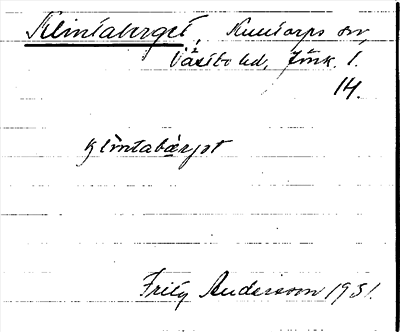 Klintaberget, Kulltorps sn,
Västbo hd, Jönk. l.
14.
klintabärjet
Fritz Andersson 1931.